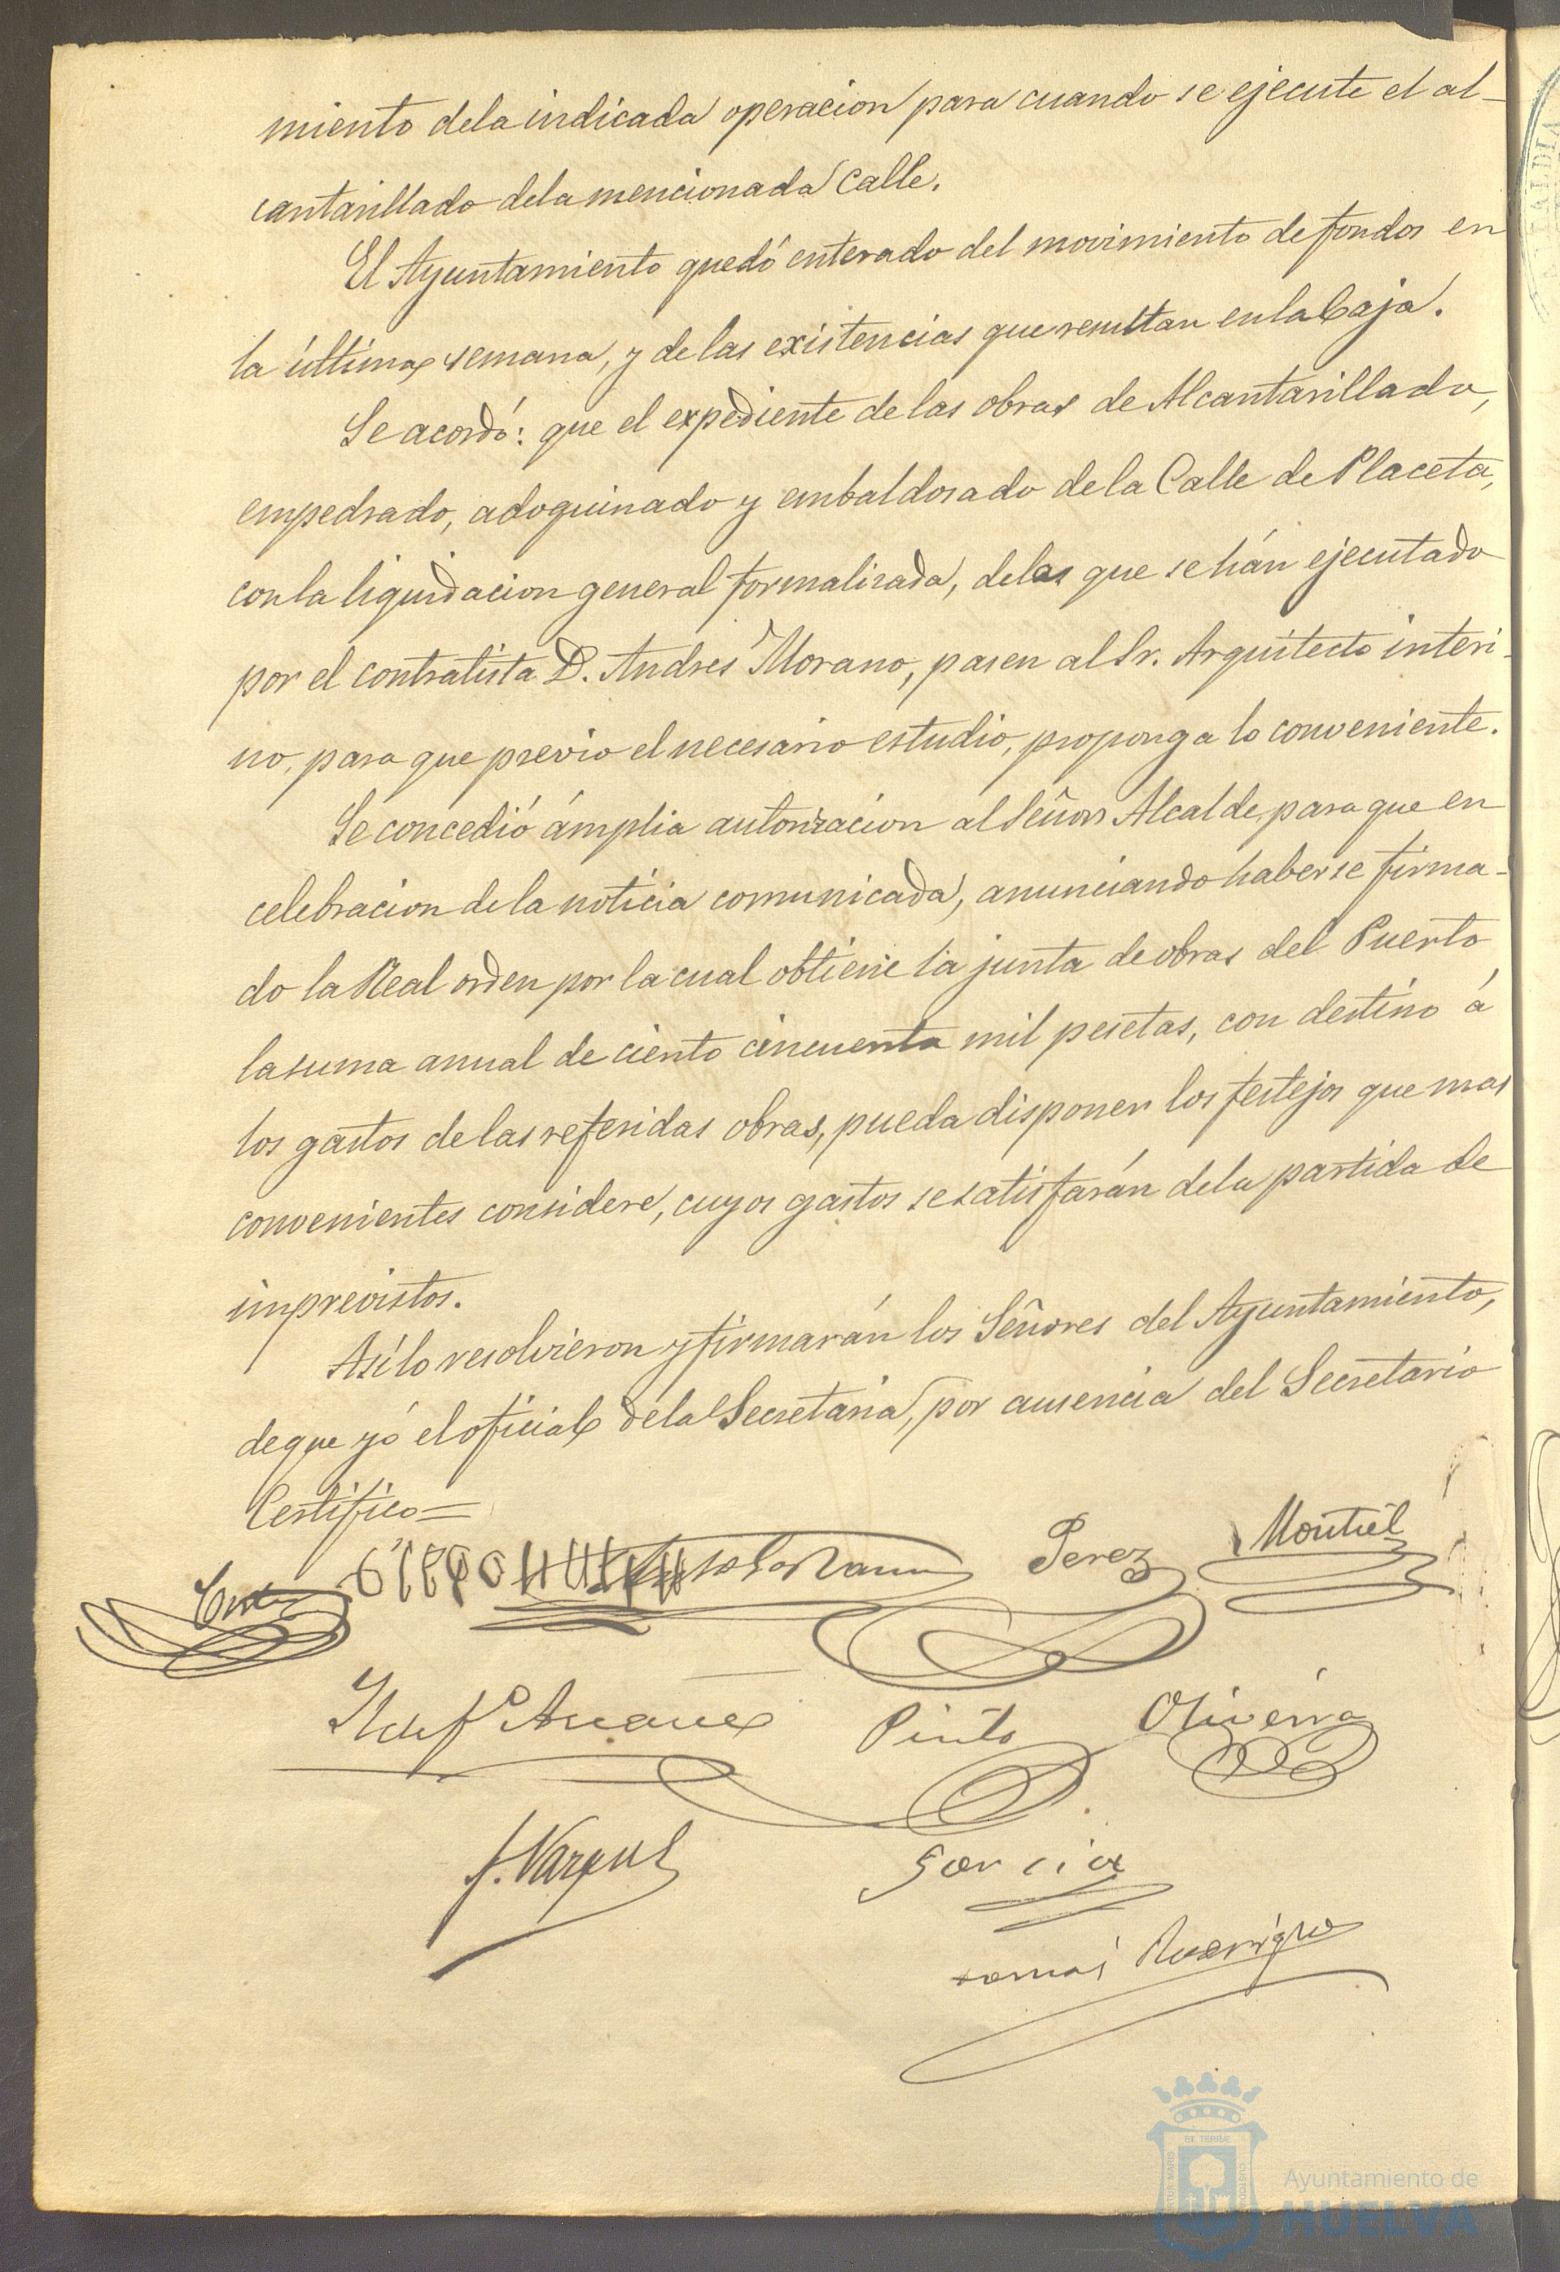 miento de la indicada operacion para cuando se ejecute el al-
cantarillado de la mencionada Calle.
El Ayuntamiento quedó enterado del movimiento de fondos en
la última semana, y de las existencias que resultan en la Caja.
Se acordó: que el expediente de las obras de Alcantarillado,
empedrado, adoquinado y embaldosado de la Calle de Placeta,
con la liquidacion general formalizada, de las que se hán ejecutado
por el contratista D. Andres Morano, pasen al Sr. Arquitecto interi-
no, para que previo el necesario estudio, proponga lo conveniente.
Se concedió ámplia autorizacion al Señor Alcalde, para que en
celebracion de la noticia comunicada, anunciando haberse firma-
do la Real orden por la cual obtiene la junta de obras del Puerto
la suma anual de ciento cincuenta mil pesetas, con destino á
los gastos de las referidas obras, pueda disponer los festejos que mas
convenientes considere, cuyos gastos se satisfarán de la partida de
imprevistos.
Asi lo resolvieron y firmarán los Señores del Ayuntamiento,
de que yó el oficial de la Secretaria, por ausencia del Secretario
Certifico=
Perez Montiel
Pinto Oliveira
J. Vargas Garcia
Tomás Rodriguez
ALCALDIA
Ayuntamiento de
HUELVA